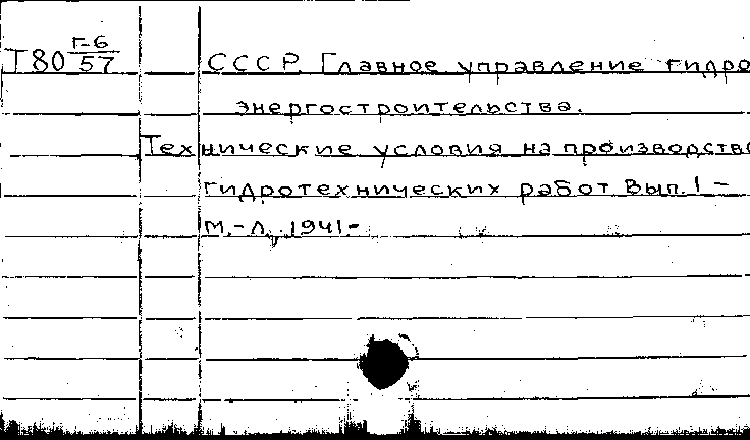 Т80 Г-6/57 СССР. Главное управление гидро
энергостроительства.
Технические условия на производство
гидротехнических работ Вып. 1 –
М.-Л., 1941.-